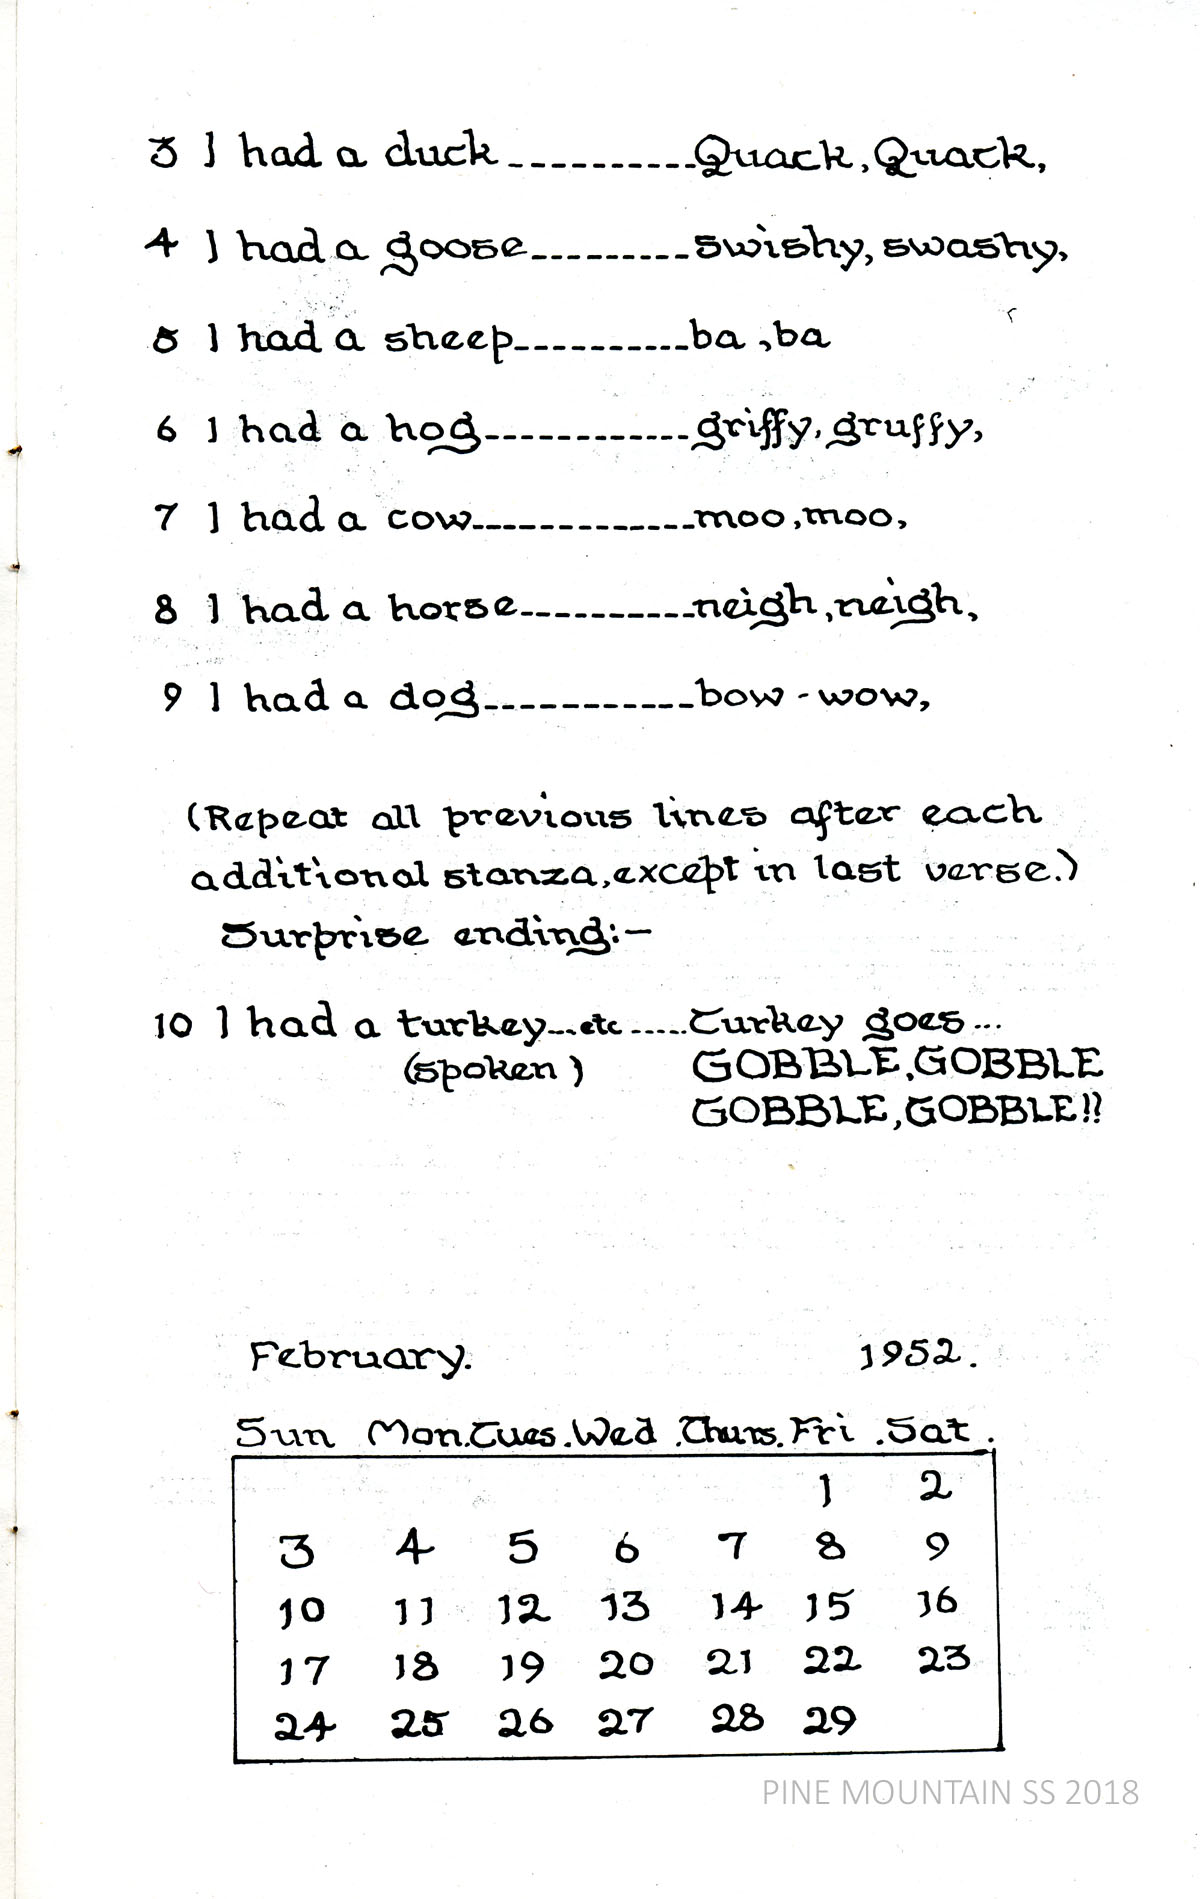 3 I had a duck..........Quack, Quack,
4 I had a goose.........swishy, swashy,
5 I had a sheep..........ba, ba
6 I had a hog............griffy, gruffy,
7 I had a cow.............moo, moo,
8 I had a horse..........neigh, neigh,
9 I had a dog............bow-wow,
(Repeat all previous lines after each
additional stanza, except in last verse.)
Surprise ending:—
10 I had a turkey...etc.....Turkey goes...
(spoken) GOBBLE, GOBBLE
GOBBLE, GOBBLE!!
February. 1952.
Sun Mon. Tues. Wed. Thurs. Fri. Sat.
1 2
3 4 5 6 7 8 9
10 11 12 13 14 15 16
17 18 19 20 21 22 23
24 25 26 27 28 29
PINE MOUNTAIN SS 2018